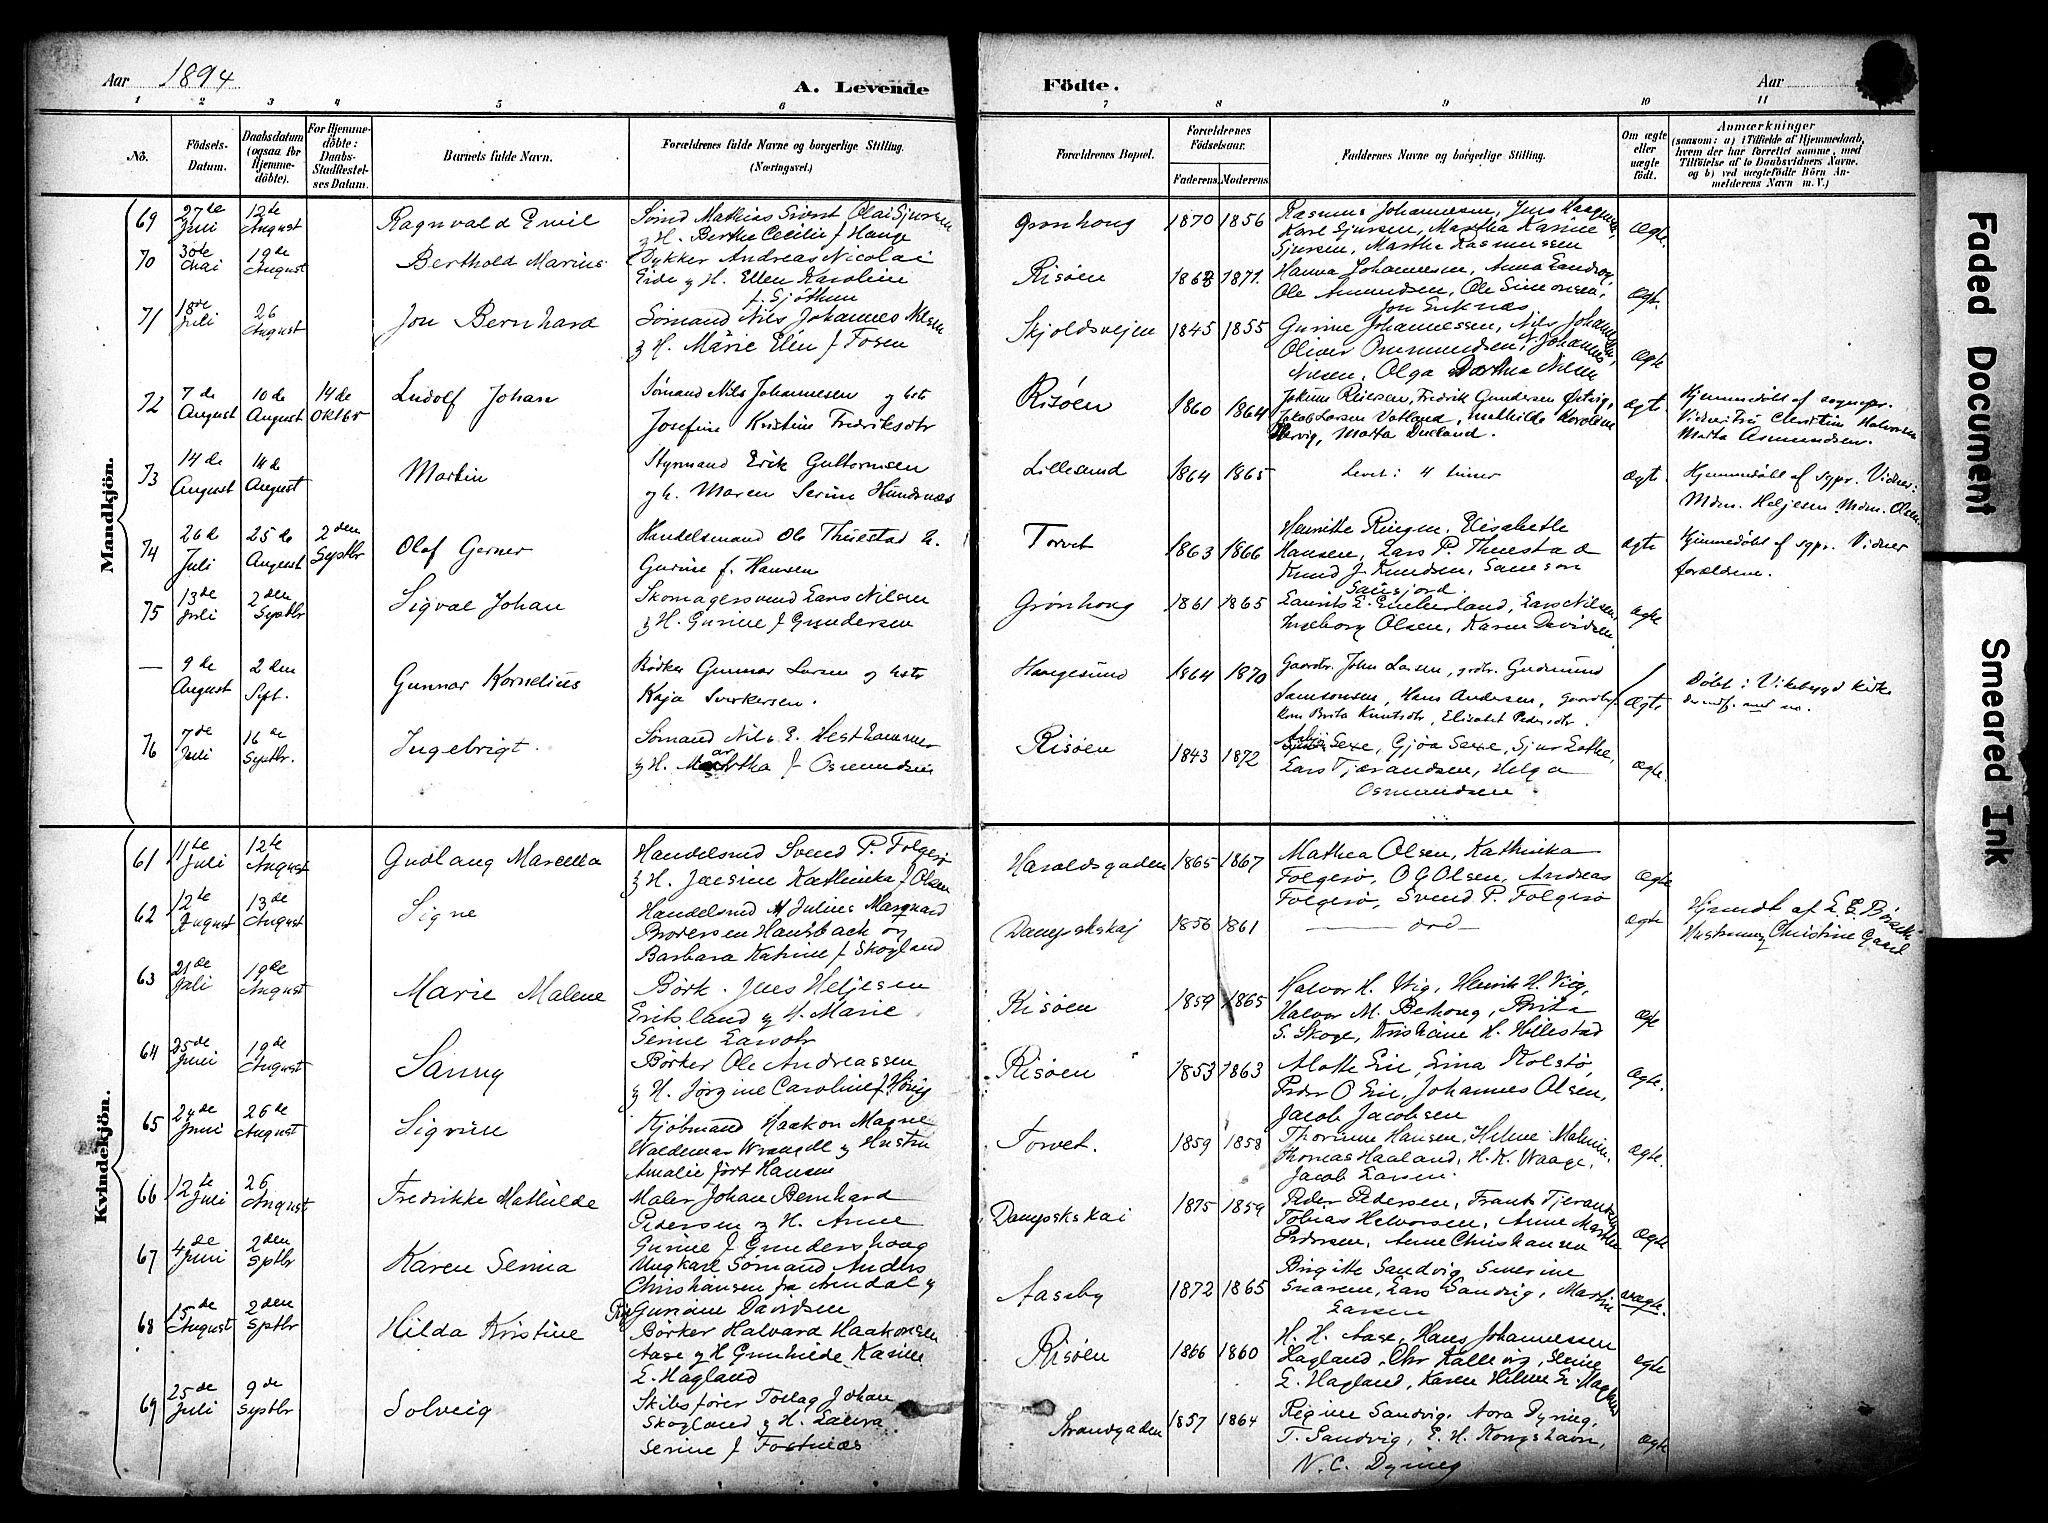 Aar 1894
A. Levende
Födte.
Aar
1 2 3 4 5 6 7 8 9 10 11
No. Födsels-Datum. Daabsdatum (ogsaa for Hjemmedöbte). For Hjemmedöbte: Daabs-Stadfestelses Datum. Barnets fulde Navn. Forældrenes fulde Navne og borgerlige Stilling. (Næringsvei.) Forældrenes Bopæl. Forældrenes Födselsaar. Faderens. Moderens. Faddernes Navne og borgerlige Stilling. Om ægte eller uægte födt. Anmærkninger (saasom: a) i Tilfælde af Hjemmedaab, hvem der har forrettet samme, med Tilföielse af to Daabsvidners Navne, og b) ved uægtefödte Börn Anmelderens Navn m. V.)
Mandkjön.
69 27de Juli 12te August Ragnvald Emil Sömd Mathias Sivert Olai Sjursen & H. Bertha Cecilie f Hauge Grönhoug 1870 1856 Rasmus Johannesen, Jens Haagensen, Karl Sjursen, Martha Karine Sjursen, Martha Rasmussen ægte
70 30te Mai 19de August Berthold Marius Dykker Andreas Nicolai Eide & H. Ellen Karoline f. Sjöthun Risöen 1868 1871. Hanna Johannesen, Anna Sandvog Ole Amundsen, Ole Simonsen, Jon Eriknæs ægt.
71 18de Juli 26 August Jon Bernhard Sömand Nils Johannes Nilsen & H. Marie Elen f Fosen Skjoldsvejen 1845 1855 Gurine Johannessen, Nils Johannesen, Oliver Ommundsen, Johannes Nilsen, Olga Dorthea Nilsen ægte
72 7de August 10de August 14de Oktbr Ludolf Johan Sömand Nils Johannesen og hst Josefine Kristine Fredriksdtr Risöen 1860 1864 Jokum Reiersen, Fredrik Gundersen Östvig, Jakob Larsen Vatland, Mathilde Haroldson Marta Dueland. ægte Hjemmedöbt af sognepr. Vidner: Christine Halvorsen Marta Asmundsen.
73 14de August 14de August Martin Styrmand Erik Guttormsen og h. Maren Serine Hundsnæs Lillesund 1864 1865 Levet: 4 timer ægt. Hjemmedöbt af sypr. Vidner: Mdm. Heljesen. Mdm. Olsen.
74 26de Juli 25de August 2den Septbr Olaf Gerner Handelsmand Ole Thuestad & Gurine f. Hansen Torvet 1863 1866 Henritte Ringen. Elisabeth Hansen, Lars P. Thuestad Knud J. Knudsen, Samson Sausjord. ægte Hjemmedöbt af sypr. Vidner forældrene.
75 13de Juli 2den Septbr Sigval Johan Skomagersvend Lars Nilsen & H. Gurine f Gundersen Grönhoug 1861 1865 Laurits E. Emberland, Lars Nilsen, Ingeborg Olsen, Karen Davidsen ægte
— 9de August 2den Sept. Gunnar Kornelius Bödker Gunnar Larsen og hst Kaja Sverkersen. Haugesund 1864 1870 Gaardbr. John Larsen, grdbr. Gudmund Samsonsen, Hans Andersen, gaardbr. Kone Brita Knutsdtr, Elisabet Pedersdtr. ægte Döbt i Vikebygd kirke
76 7de Juli 16de Septbr. Ingebrigt. Sömand Nils E. Hesthammer & H. Martha f Osmundsen Risöen 1843 1872 Sexe, Gjöa Sexe, Sjur Lothe, Lars Tjærandsen, Helga Osmundsen ægte.
Kvindekjön.
61 11te Juli 12te August Gudlaug Marcelia Handelsmd Svend P. Folgerö & H. Jacsine Kathinka f Olsen Haraldsgaden 1865 1867 Mathea Olsen, Kathinka Folgerö, O G Olsen, Andreas Folgerö, Svend P. Folgerö ægte
62 12te August 13de August Signe Handelsmd M Julius Marquard Brodersen Hansbach og Barbara Katrine f Skogland Dampskskaj 1856 1861 — död — ægte Hjmdt af E. E. Hustru Christine Gaard
63 21de Juli 19de August Marie Malene Börk. Jens Heljesen Eriksland & H. Marie Serine Larsdtr Risöen 1859 1865 Halvor H. Viig, Henrik H. Viig, Halvor M. Bethoug, Brita S. Skoge, Kristiane H. Hillestad ægte
64 25de Juni 19de August Sanny Börker Ole Andreassen & H. Jörgine Caroline f Hövig Risöen 1853 1863 Alotte Eie, Sina Kolstö, Peder O Eie, Johannes Olsen, Jacob Jacobsen ægte.
65 24de Juni 26de August Sigrun Kjöbmand Haakon Magne Waldemar Wrangel & Hustru Amalie födt Hansen Torvet. 1859 1858 Thorine Hansen, Helene Malmin, Thomas Haaland, H. K. Waage, Jacob Larsen ægte.
66 12te Juli 26 August Fredrikke Mathilde Maler Johan Bernhard Pedersen & H. Anne Gurine f Gundershoug Dampskskai 1875 1859 Peder Pedersen, Frants Tjerandsen Tobias Helvorsen, Anne Marthe Pedersen, Anne Christiansen ægte
67 4de Juni 2den Sptbr Karen Serina Ungkarl Sömand Anders Christiansen fra Arndal & Pig Guriane Davidsen Aasaby 1872 1865 Brigitte Sandvig, Severine Snaresen, Lars Sandvig, Martin Larsen uægte.
68 15de August 2den Sptbr Hilda Kristine Börker Halvard Haakonsen Aase & H Gunhilde Karine E. Hagland Risöen 1866 1860 H. H. Aase, Hans Johannessen Hagland, Chr Kallevig, Serine E. Hagland, Karen Helene E. Hagland ægte
69 25de Juli 9de Septbr Solveig Skibsförer Torlag Johan Skogland & H. Laura Serine f Fostnæs Strandgaden 1857 1864 Regine Sandvig, Nora Dyring, T. Sandvig, E. H. Kongshavn, N. C. Dyring ægte
Faded Document
Smeared Ink